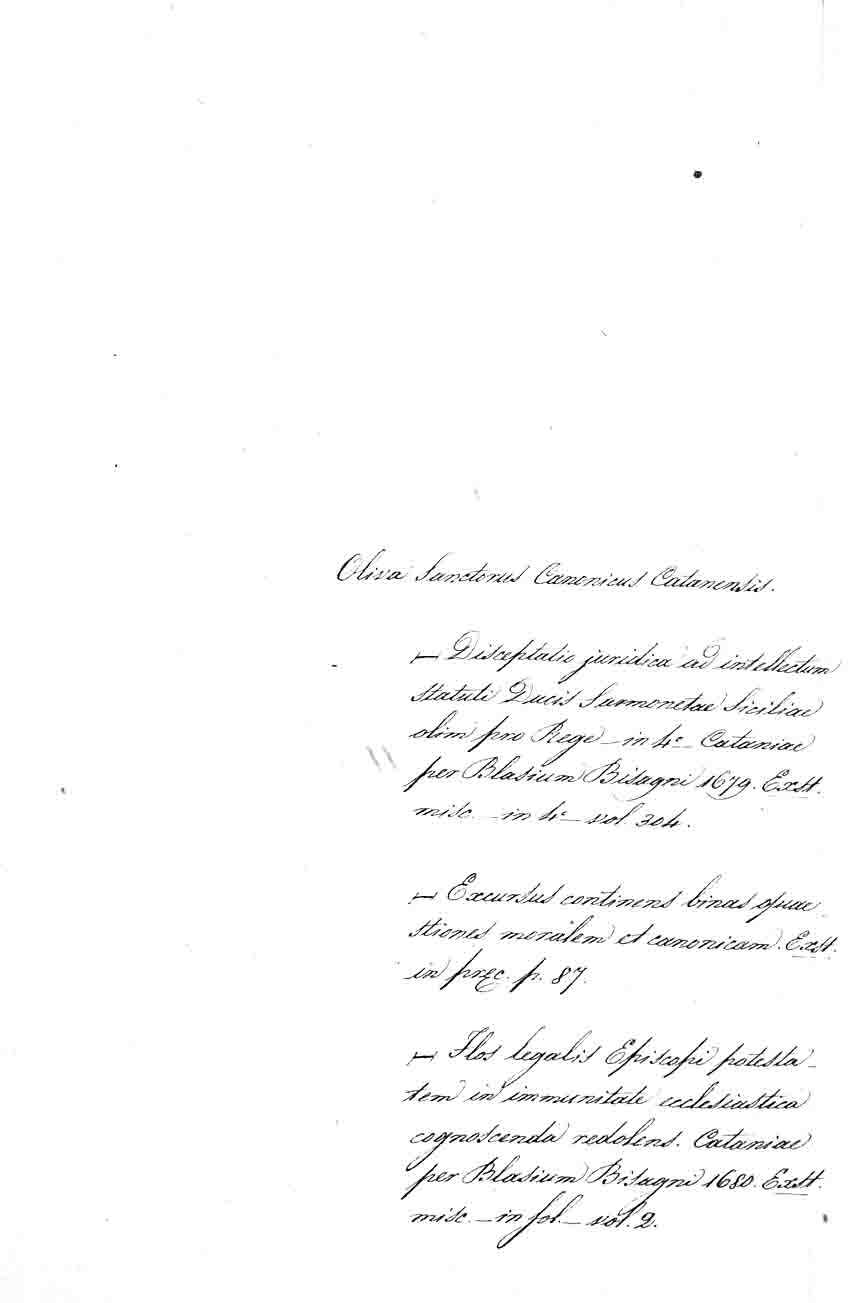 Oliva Sanctorus Canonicus Catanensis.
— Disceptatio juridica ad intellectum
statuti Ducis Sarmonetae Siciliae
olim pro Rege — in 4º — Cataniae
per Blasium Bisagni 1679. Exst.
misc. — in 4º — vol. 304.
— Excursus continens binas quae-
stiones moralem et canonicam. Exst.
in prec. p. 87.
— Flos legalis Episcopi potesta-
tem in immunitate ecclesiastica
cognoscenda redolens. Cataniae
per Blasium Bisagni 1680. Exst.
misc. — in fol. — vol. 2.